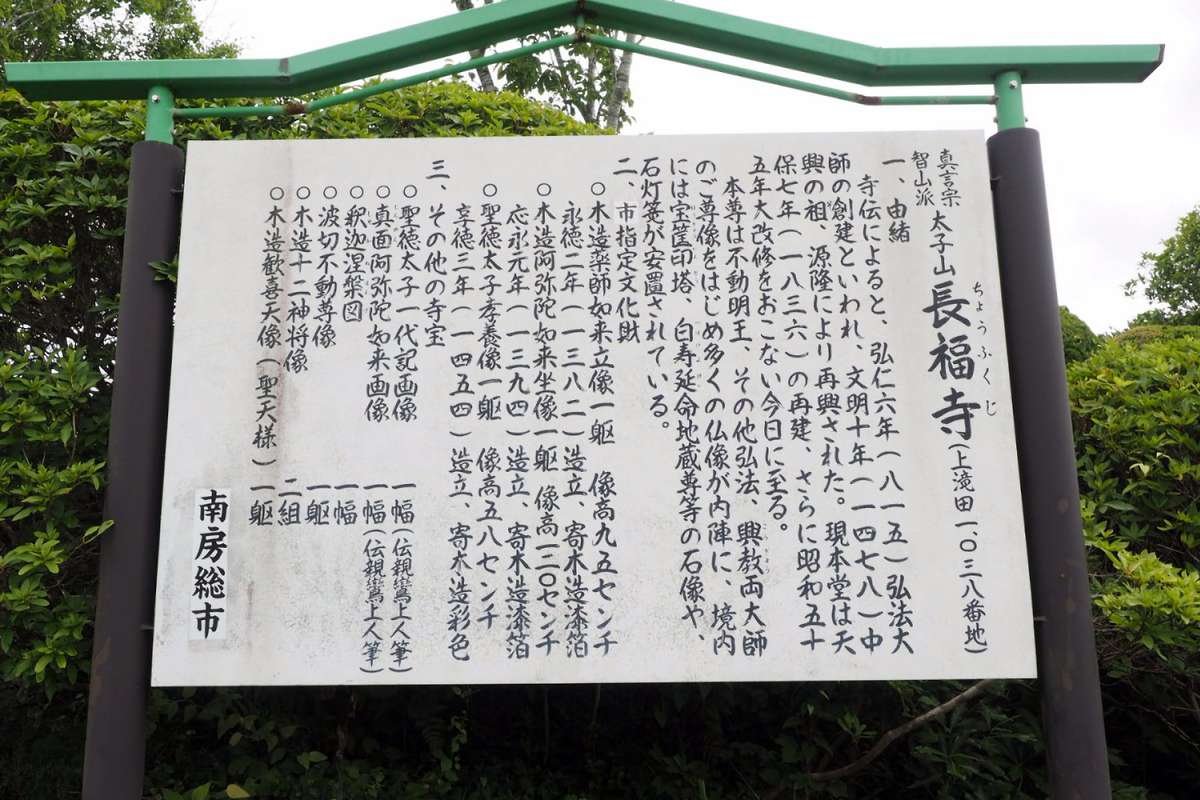 真言宗
智山派
太子山 長福寺(上滝田一、〇三八番地)
ちょうふくじ
一、由緒
寺伝によると、弘仁六年(八一五)弘法大
師の創建といわれ、文明十年(一四七八)中
興の祖、源隆により再興された。現本堂は天
保七年(一八三六)の再建、さらに昭和五十
五年大改修をおこない今日に至る。
本尊は不動明王、その他弘法、興教両大師
のご尊像をはじめ多くの仏像が内陣に、境内
には宝篋印塔、白寿延命地蔵尊等の石像や、
石灯篭が安置されている。
二、市指定文化財
○木造薬師如来立像一躯 像高九五センチ
永徳二年(一三八二)造立、寄木造漆箔
○木造阿弥陀如来坐像一躯 像高一二〇センチ
応永元年(一三九四)造立、寄木造漆箔
○聖徳太子孝養像一躯 像高五八センチ
享徳三年(一四五四)造立、寄木造彩色
三、その他の寺宝
○聖徳太子一代記画像 一幅(伝親鸞上人筆)
○真面阿弥陀如来画像 一幅(伝親鸞上人筆)
○釈迦涅槃図 一幅
○波切不動尊像 一躯
○木造十二神将像 二組
○木造歓喜天像(聖天様) 一躯
南房総市